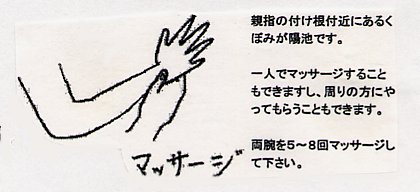 親指の付け根付近にあるく
ぼみが陽池です。
一人でマッサージすること
もできますし、周りの方にや
ってもらうこともできます。
両腕を5〜8回マッサージし
て下さい。
マッサージ